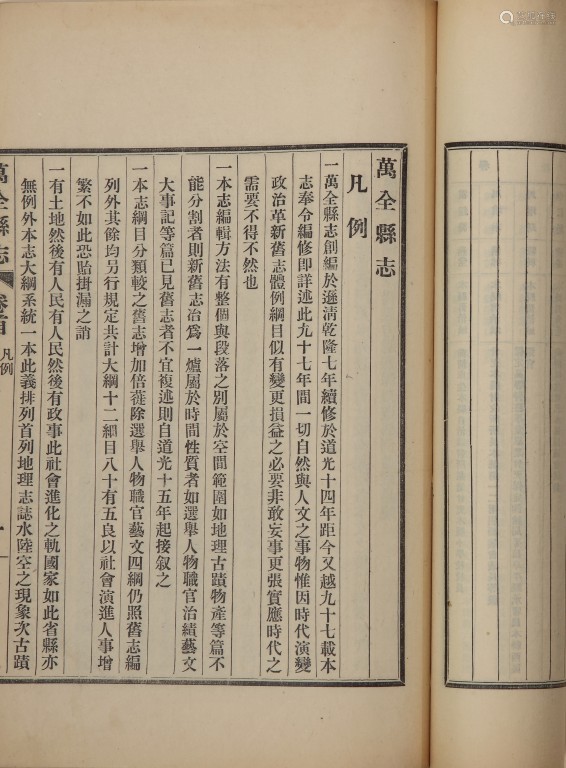 萬全縣志
凡例
一萬全縣志創編於遜淸乾隆七年續修於道光十四年距今又越九十七載本
志奉令編修卽詳述此九十七年間一切自然與人文之事物惟因時代演變
政治革新舊志體例綱目似有變更損益之必要非敢妄事更張實應時代之
需要不得不然也
一本志編輯方法有整個與段落之別屬於空間範圍如地理古蹟物產等篇不
能分割者則新舊志冶爲一爐屬於時間性質者如選舉人物職官治績藝文
大事記等篇已見舊志者不宜複述則自道光十五年起接叙之
一本志綱目分類較之舊志增加倍蓰除選舉人物職官藝文四綱仍照舊志編
列外其餘均另行規定共計大綱十二細目八十有五良以社會演進人事增
繁不如此恐貽掛漏之誚
一有土地然後有人民有人民然後有政事此社會進化之軌國家如此省縣亦
無例外本志大綱系統一本此義排列首列地理志誌水陸空之現象次古蹟
萬全縣志
卷首
凡例
一